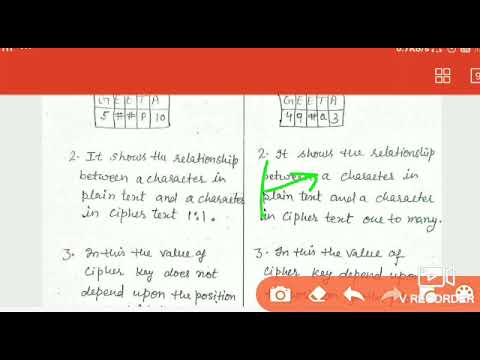 G E E T A
5 # # P 10
2. It shows the relationship
between a character in
plain text and a character
in cipher text 1:1.
3. In this the value of
cipher key does not
depend upon the position
G E E T A
4 9 # a 3
2. It shows the relationship
between a character in
plain text and a character
in cipher text one to many.
3. In this the value of
cipher key depend upon
V RECORDER